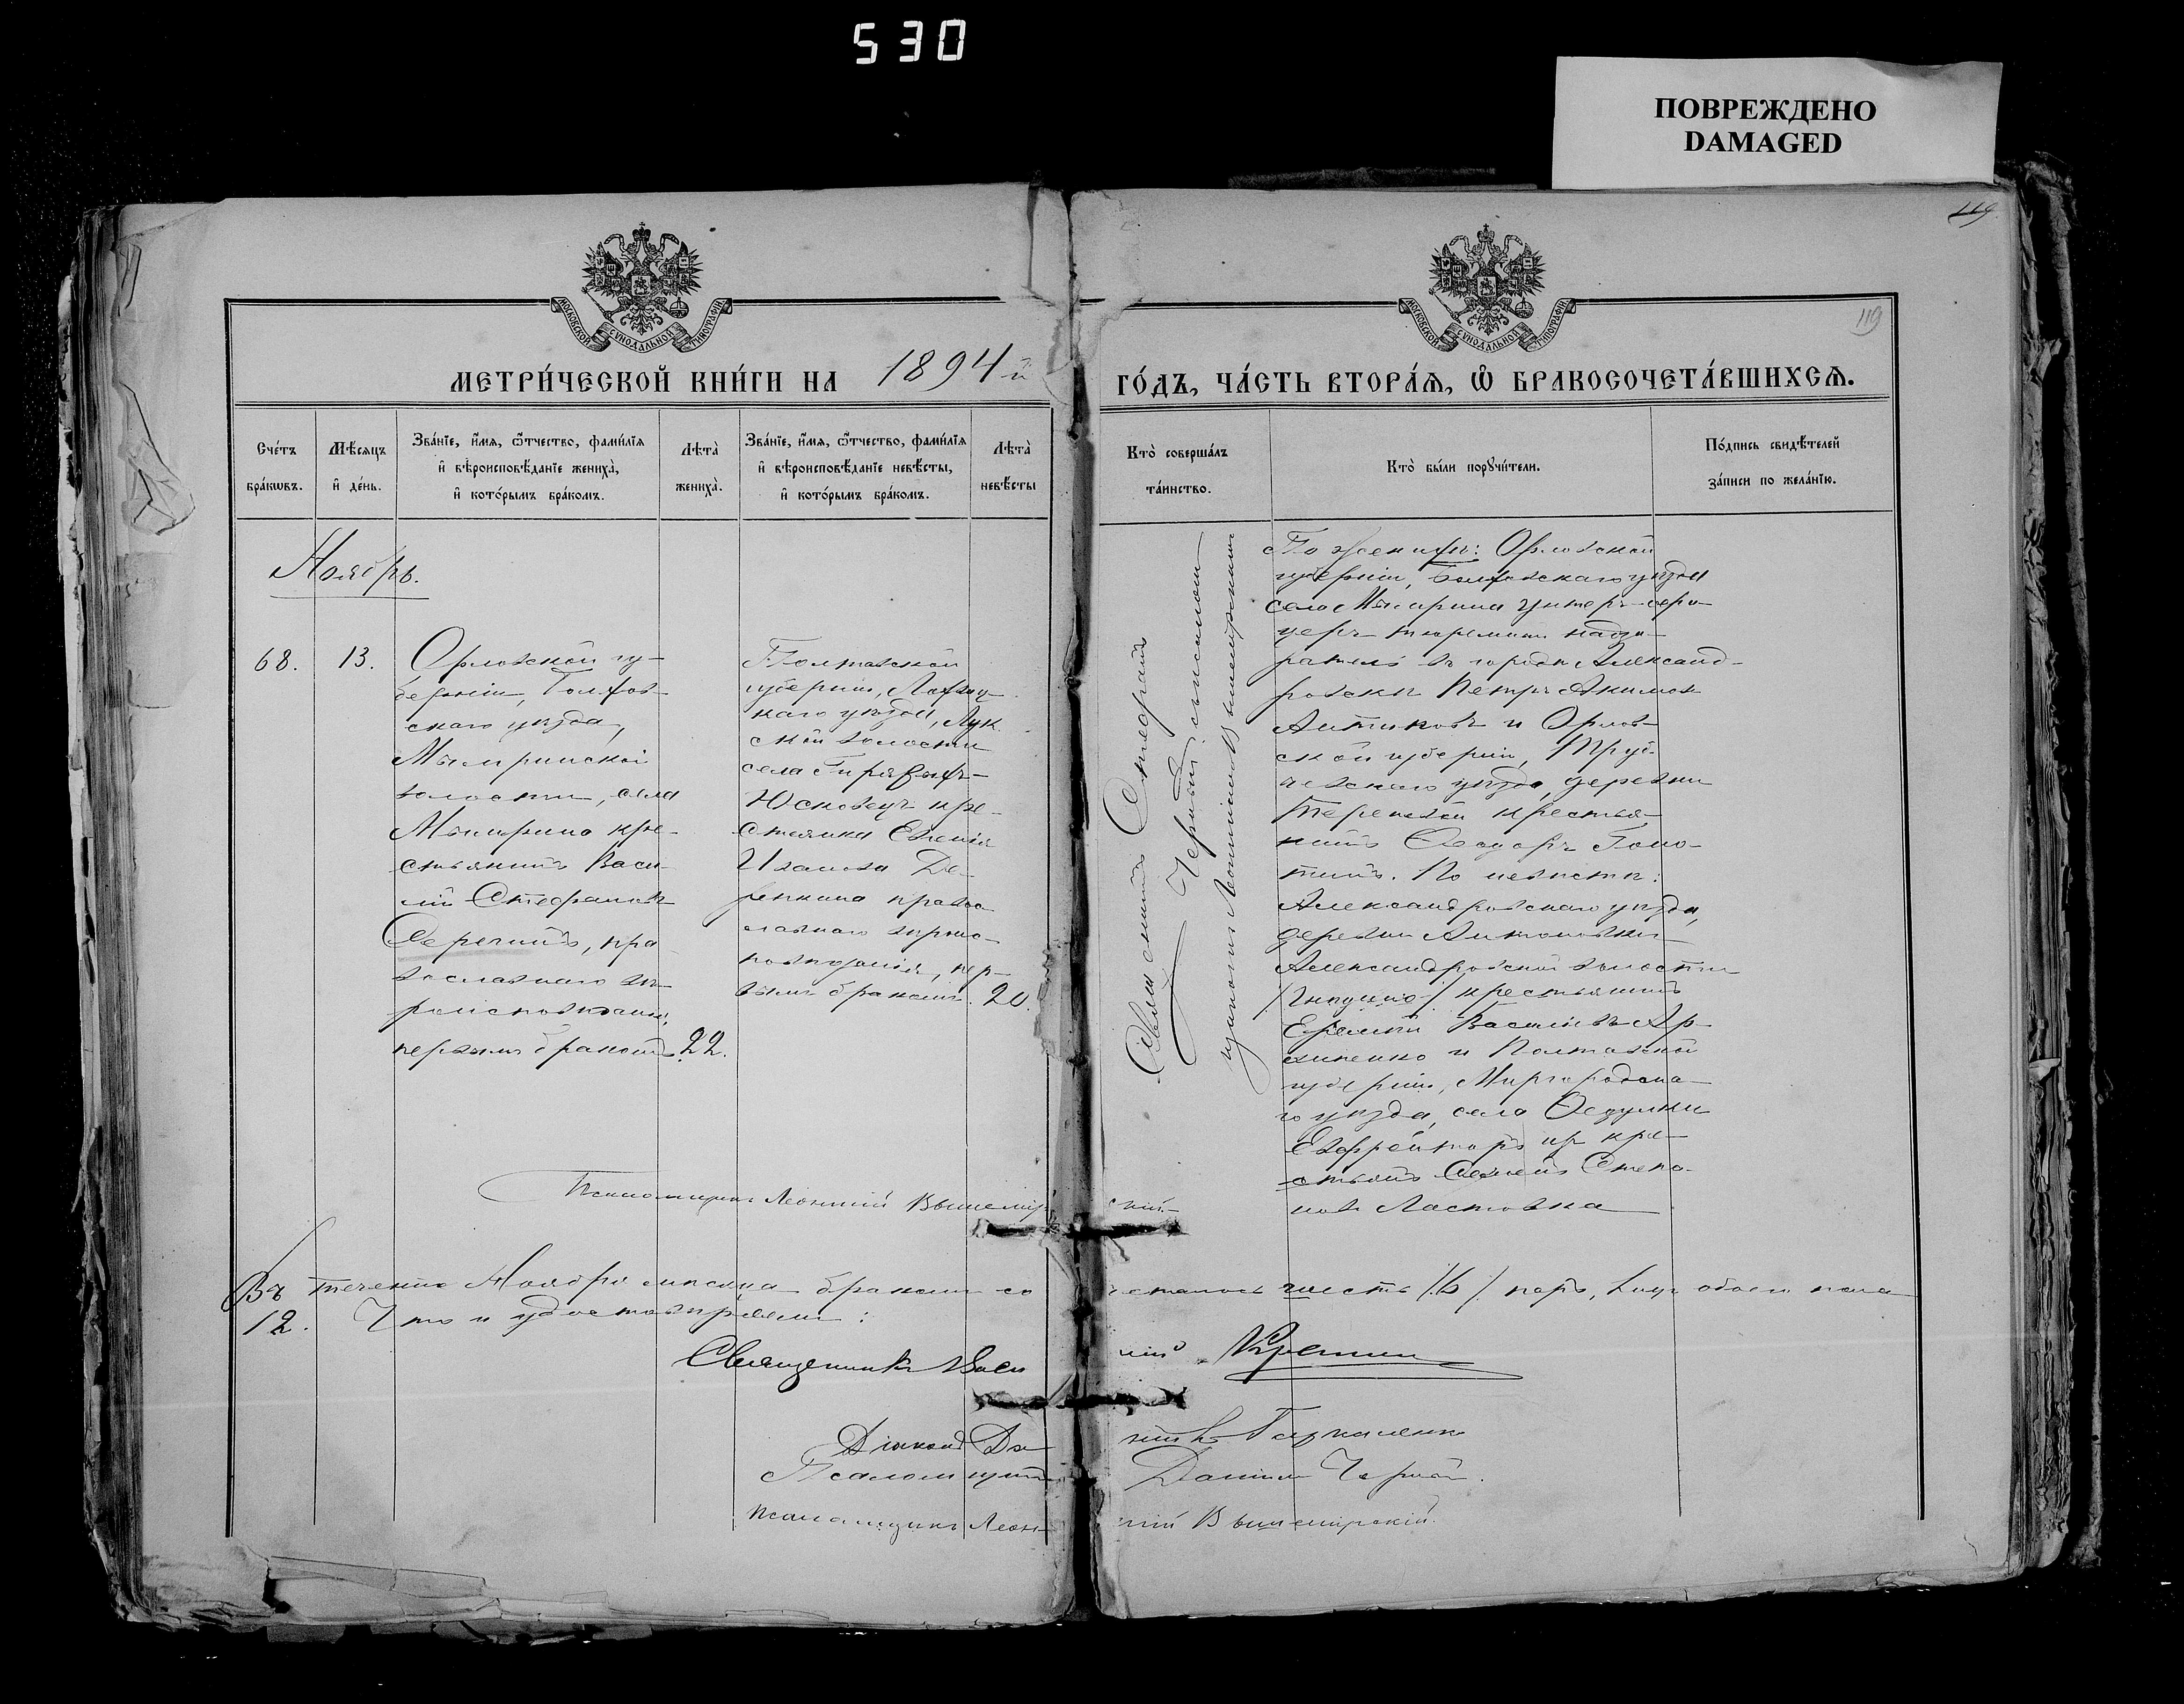 530
ПОВРЕЖДЕНО
DAMAGED
119
119
МОСКОВСКОЙ СѴНОДАЛЬНОЙ ТИПОГРАФІИ
МОСКОВСКОЙ СѴНОДАЛЬНОЙ ТИПОГРАФІИ
МЕТРИ́ЧЕСКОЙ КНИ́ГИ НА 1894 й
ГО́ДЪ, ЧА́СТЬ ВТОРА́Я, Ѿ БРАКОСОЧЕТА́ВШИХСЯ.
Сче́тъ бра́кѡвъ.
Мѣ́сяцъ и̂ де́нь.
Зва́нїе, и҆́мя, ѻ҆́тчество, фами́лїя
и҆ вѣроисповѣ́данїе жениха̀,
и҆ кото́рымъ бра́комъ.
Лѣта̀ жениха̀.
Зва́нїе, и҆́мя, ѻ҆́тчество, фами́лїя
и҆ вѣроисповѣ́данїе невѣ́сты,
и҆ кото́рымъ бра́комъ.
Лѣта̀ невѣ́сты
Кто̀ соверша́лъ та́инство.
Кто̀ бы́ли порꙋчи́тели.
По́дпись свидѣ́телей
за́писи по жела́нїю.
Ноябрь.
68.
13.
Орловской гу-
берніи, Болхов-
скаго уѣзда,
Мымринской
волости, села
Мымрино кре-
стьянинъ Васи-
лій Стефановъ
пра-
вославнаго вѣ-
роисповѣданія,
первымъ бракомъ
22.
Полтавской
губерніи, Лохвиц-
каго уѣзда, Лук-
ской волости
села
Юсковецъ кре-
стьянка Евгенія
Иванова Де-
ренкина право-
славнаго вѣроис-
повѣданія, пер-
вымъ бракомъ.
20.
Священникъ Стефанъ
Черный съ псаломщ
Леонтіемъ Вышемірскимъ
По женихѣ: Орловской
губерніи, Болховскаго уѣзда
села Мымрина унтеръ-офи-
церъ тюремный надзи-
ратель въ городѣ Александ-
ровскѣ Петръ Акимовъ
Антиповъ и Орлов-
ской губерніи, Труб-
чевскаго уѣзда, деревни
крестья-
нинъ Ѳеодоръ
По невѣстѣ:
Александровскаго уѣзда,
деревни Антоновки
Александровской волости
крестьянинъ
Васильевъ Ар-
хипенко и Полтавской
губерніи, Миргородска-
го уѣзда, села
Евфрейторъ изъ кре-
стьянъ Степа-
новъ Ластовка
Псаломщикъ Леонтій Вышемірскій
Въ теченіе Ноября мѣсяца бракомъ сочеталось шесть /6/ паръ, лицъ обоего пола
12. Что и удостовѣряемъ:
Священникъ Василій
Діаконъ
Псаломщикъ Даніилъ Черный.
Псаломщикъ Леонтій Вышемірскій.